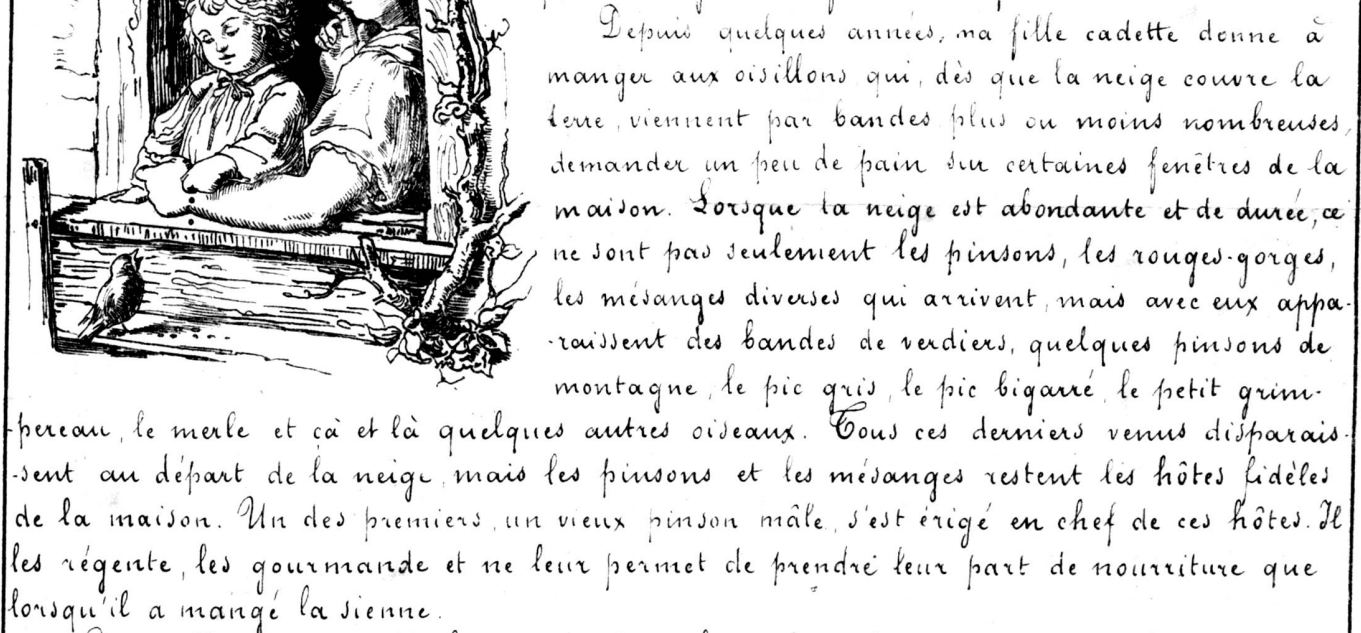 Depuis quelques années, ma fille cadette donne à
manger aux oisillons qui, dès que la neige couvre la
terre, viennent par bandes plus ou moins nombreuses,
demander un peu de pain sur certaines fenêtres de la
maison. Lorsque la neige est abondante et de durée, ce
ne sont pas seulement les pinsons, les rouges-gorges,
les mésanges diverses qui arrivent, mais avec eux appa-
-raissent des bandes de verdiers, quelques pinsons de
montagne, le pic gris, le pic bigarré, le petit grim-
-pereau, le merle et çà et là quelques autres oiseaux. Tous ces derniers venus disparais-
-sent au départ de la neige, mais les pinsons et les mésanges restent les hôtes fidèles
de la maison. Un des premiers, un vieux pinson mâle, s'est érigé en chef de ces hôtes. Il
les régente, les gourmande et ne leur permet de prendre leur part de nourriture que
lorsqu'il a mangé la sienne.